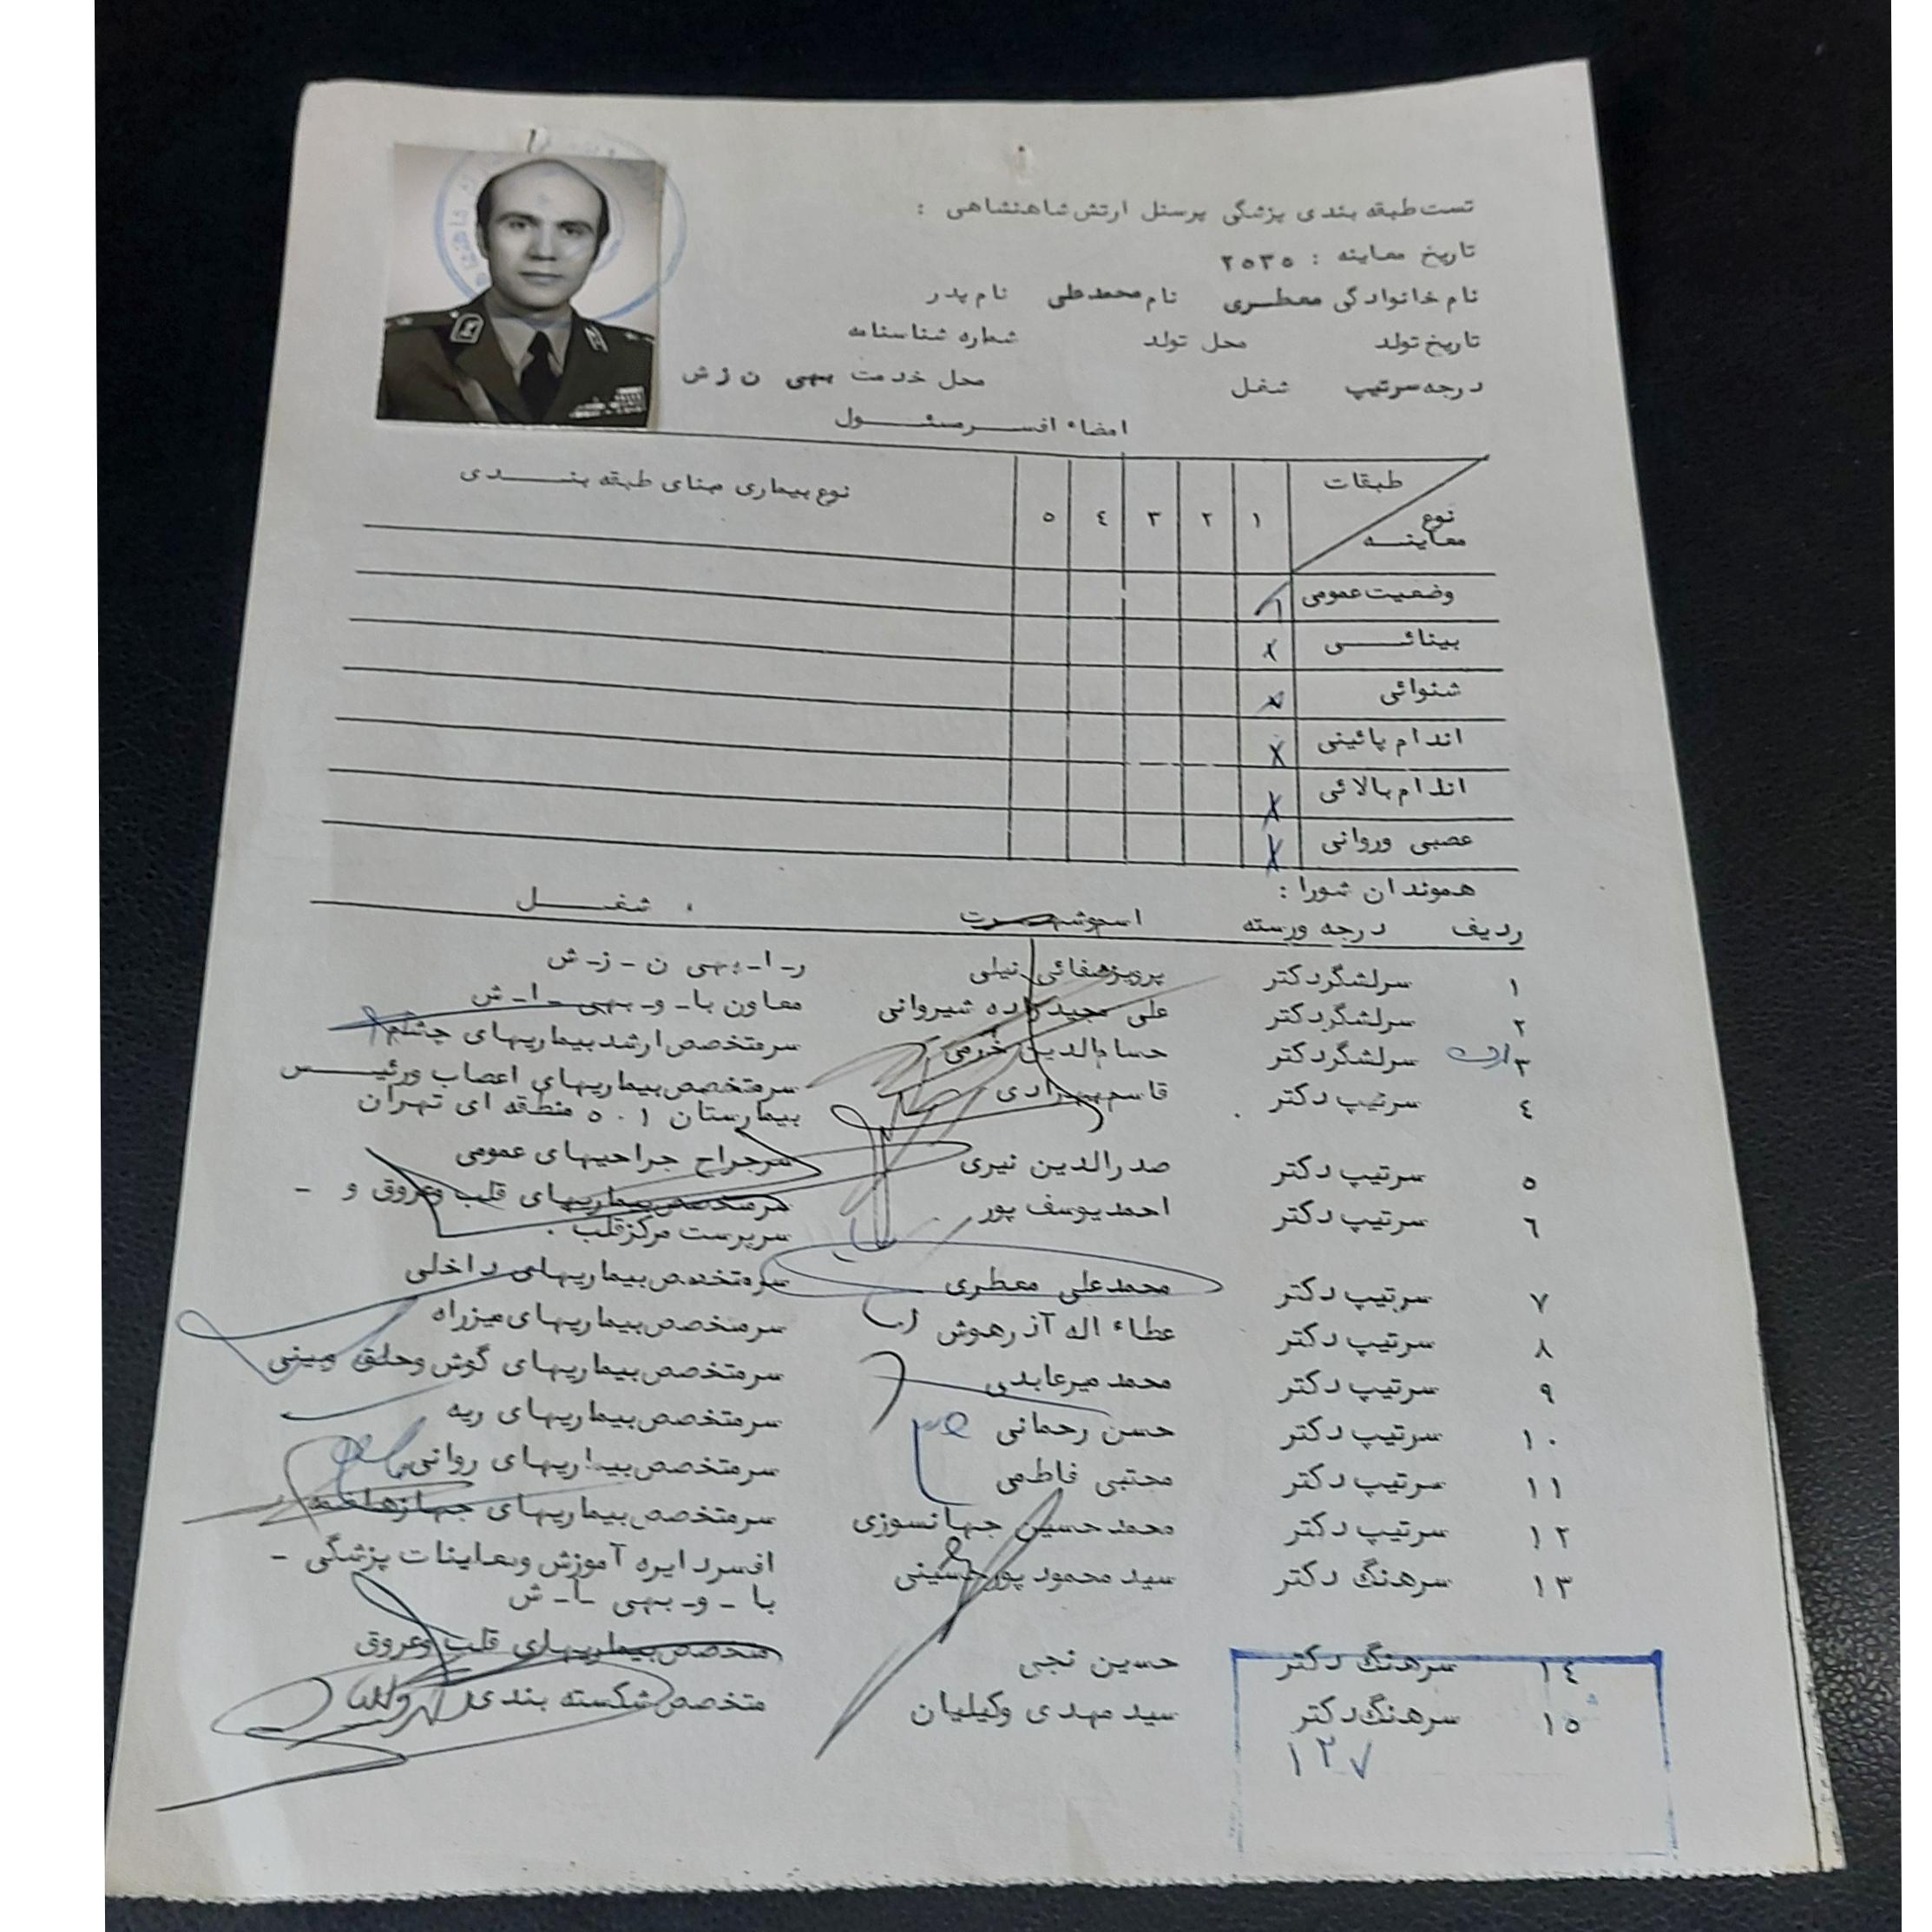 تست طبقه بندی پزشگی پرسنل ارتش شاهنشاهی :
تاریخ معاینه : ۲۵۳۵
نام خانوادگی معطری نام محمدعلی نام پدر
تاریخ تولد محل تولد شماره شناسنامه
درجه سرتیپ شغل محل خدمت بهی ن ز ش
امضاء افسر مسئول
طبقات
نوع معاینه
۱ ۲ ۳ ٤ ۵ نوع بیماری مبنای طبقه بندی
وضعیت عمومی
بینائی
شنوائی
اندام پائینی
اندام بالائی
عصبی وروانی
هموندان شورا :
ردیف درجه ورسته اسم وشهرت شغل
۱ سرلشگر دکتر پرویز صفائی نیلی ر-ا-بهی ن-ز-ش
۲ سرلشگر دکتر علی مجید زاده شیروانی معاون با-و-بهی-ا-ش
۳ سرلشگر دکتر حسام الدین خرمی سرمتخصص ارشد بیماریهای چشم
٤ سرتیپ دکتر قاسم بهزادی سرمتخصص بیماریهای اعصاب ورئیس
بیمارستان ۵۰۱ منطقه ای تهران
۵ سرتیپ دکتر صدرالدین نیری سرجراح جراحیهای عمومی
٦ سرتیپ دکتر احمد یوسف پور سرمتخصص بیماریهای قلب وعروق و -
سرپرست مرکز قلب .
۷ سرتیپ دکتر محمدعلی معطری سرمتخصص بیماریهای داخلی
۸ سرتیپ دکتر عطاء اله آذرهوش سرمتخصص بیماریهای میزراه
۹ سرتیپ دکتر محمد میرعابدی سرمتخصص بیماریهای گوش وحلق وبینی
۱۰ سرتیپ دکتر حسن رحمانی سرمتخصص بیماریهای ریه
۱۱ سرتیپ دکتر مجتبی فاطمی سرمتخصص بیماریهای روانی
۱۲ سرتیپ دکتر محمدحسین جهانسوزی سرمتخصص بیماریهای جهازهاضمه
۱۳ سرهنگ دکتر سید محمود پورحسینی افسر دایره آموزش ومعاینات پزشگی -
با-و-بهی-ا-ش
۱٤ سرهنگ دکتر حسین نجی متخصص بیماریهای قلب وعروق
۱۵ سرهنگ دکتر سید مهدی وکیلیان متخصص شکسته بندی
۱۲۷